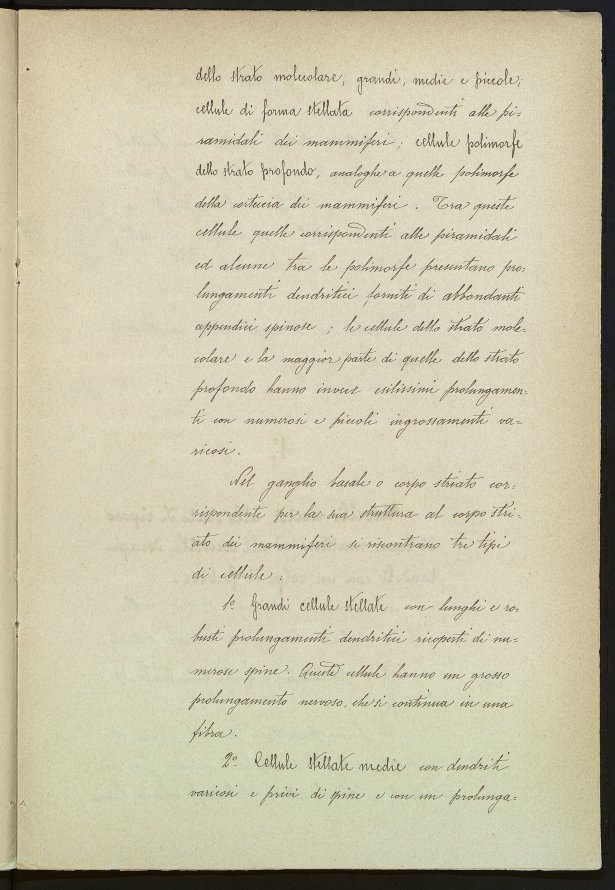 dello strato molecolare, grandi, medie e piccole;
cellule di forma stellata corrispondenti alle pi=
ramidali dei mammiferi; cellule polimorfe
dello strato profondo, analoghe a quelle polimorfe
della corteccia dei mammiferi. Tra queste
cellule quelle corrispondenti alle piramidali
ed alcune tra le polimorfe presentano pro=
lungamenti dendritici forniti di abbondanti
appendici spinose; le cellule dello strato mole=
colare e la maggior parte di quelle dello strato
profondo hanno invece esilissimi prolungamen=
ti con numerosi e piccoli ingrossamenti va=
ricosi.
Nel ganglio basale o corpo striato cor=
rispondente per la sua struttura al corpo stri=
ato dei mammiferi si riscontrano tre tipi
di cellule:
1º Grandi cellule stellate con lunghi e ro=
busti prolungamenti dendritici ricoperti di nu=
merose spine. Queste cellule hanno un grosso
prolungamento nervoso, che si continua in una
fibra.
2º Cellule stellate medie con dendriti
varicosi e privi di spine e con un prolunga=